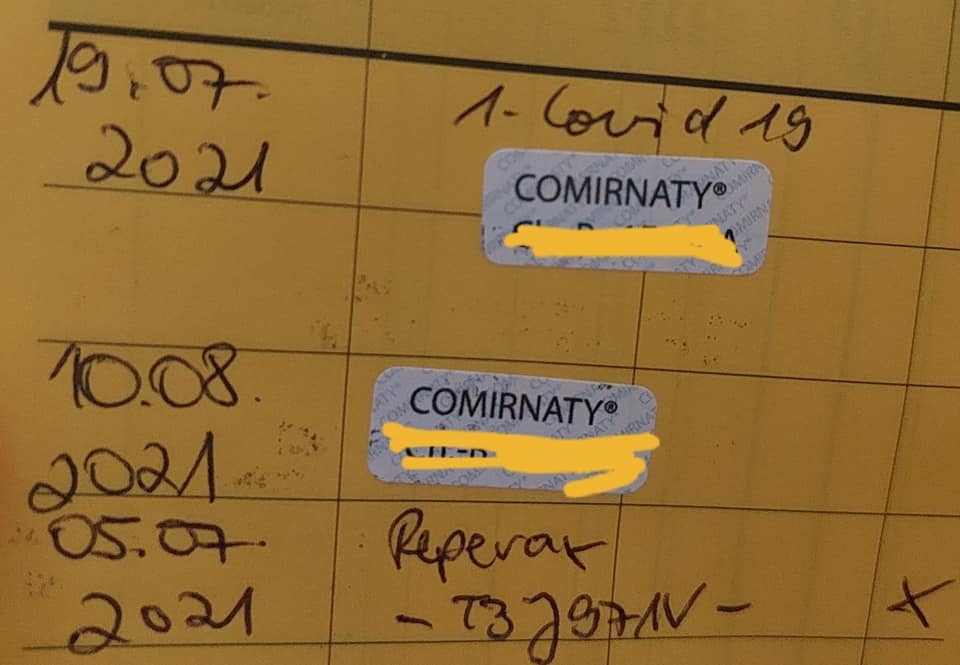 19.07.
2021
1. Covid 19
COMIRNATY®
10.08.
2021
COMIRNATY®
05.07.
2021
Repevax
- T3J971V -
X